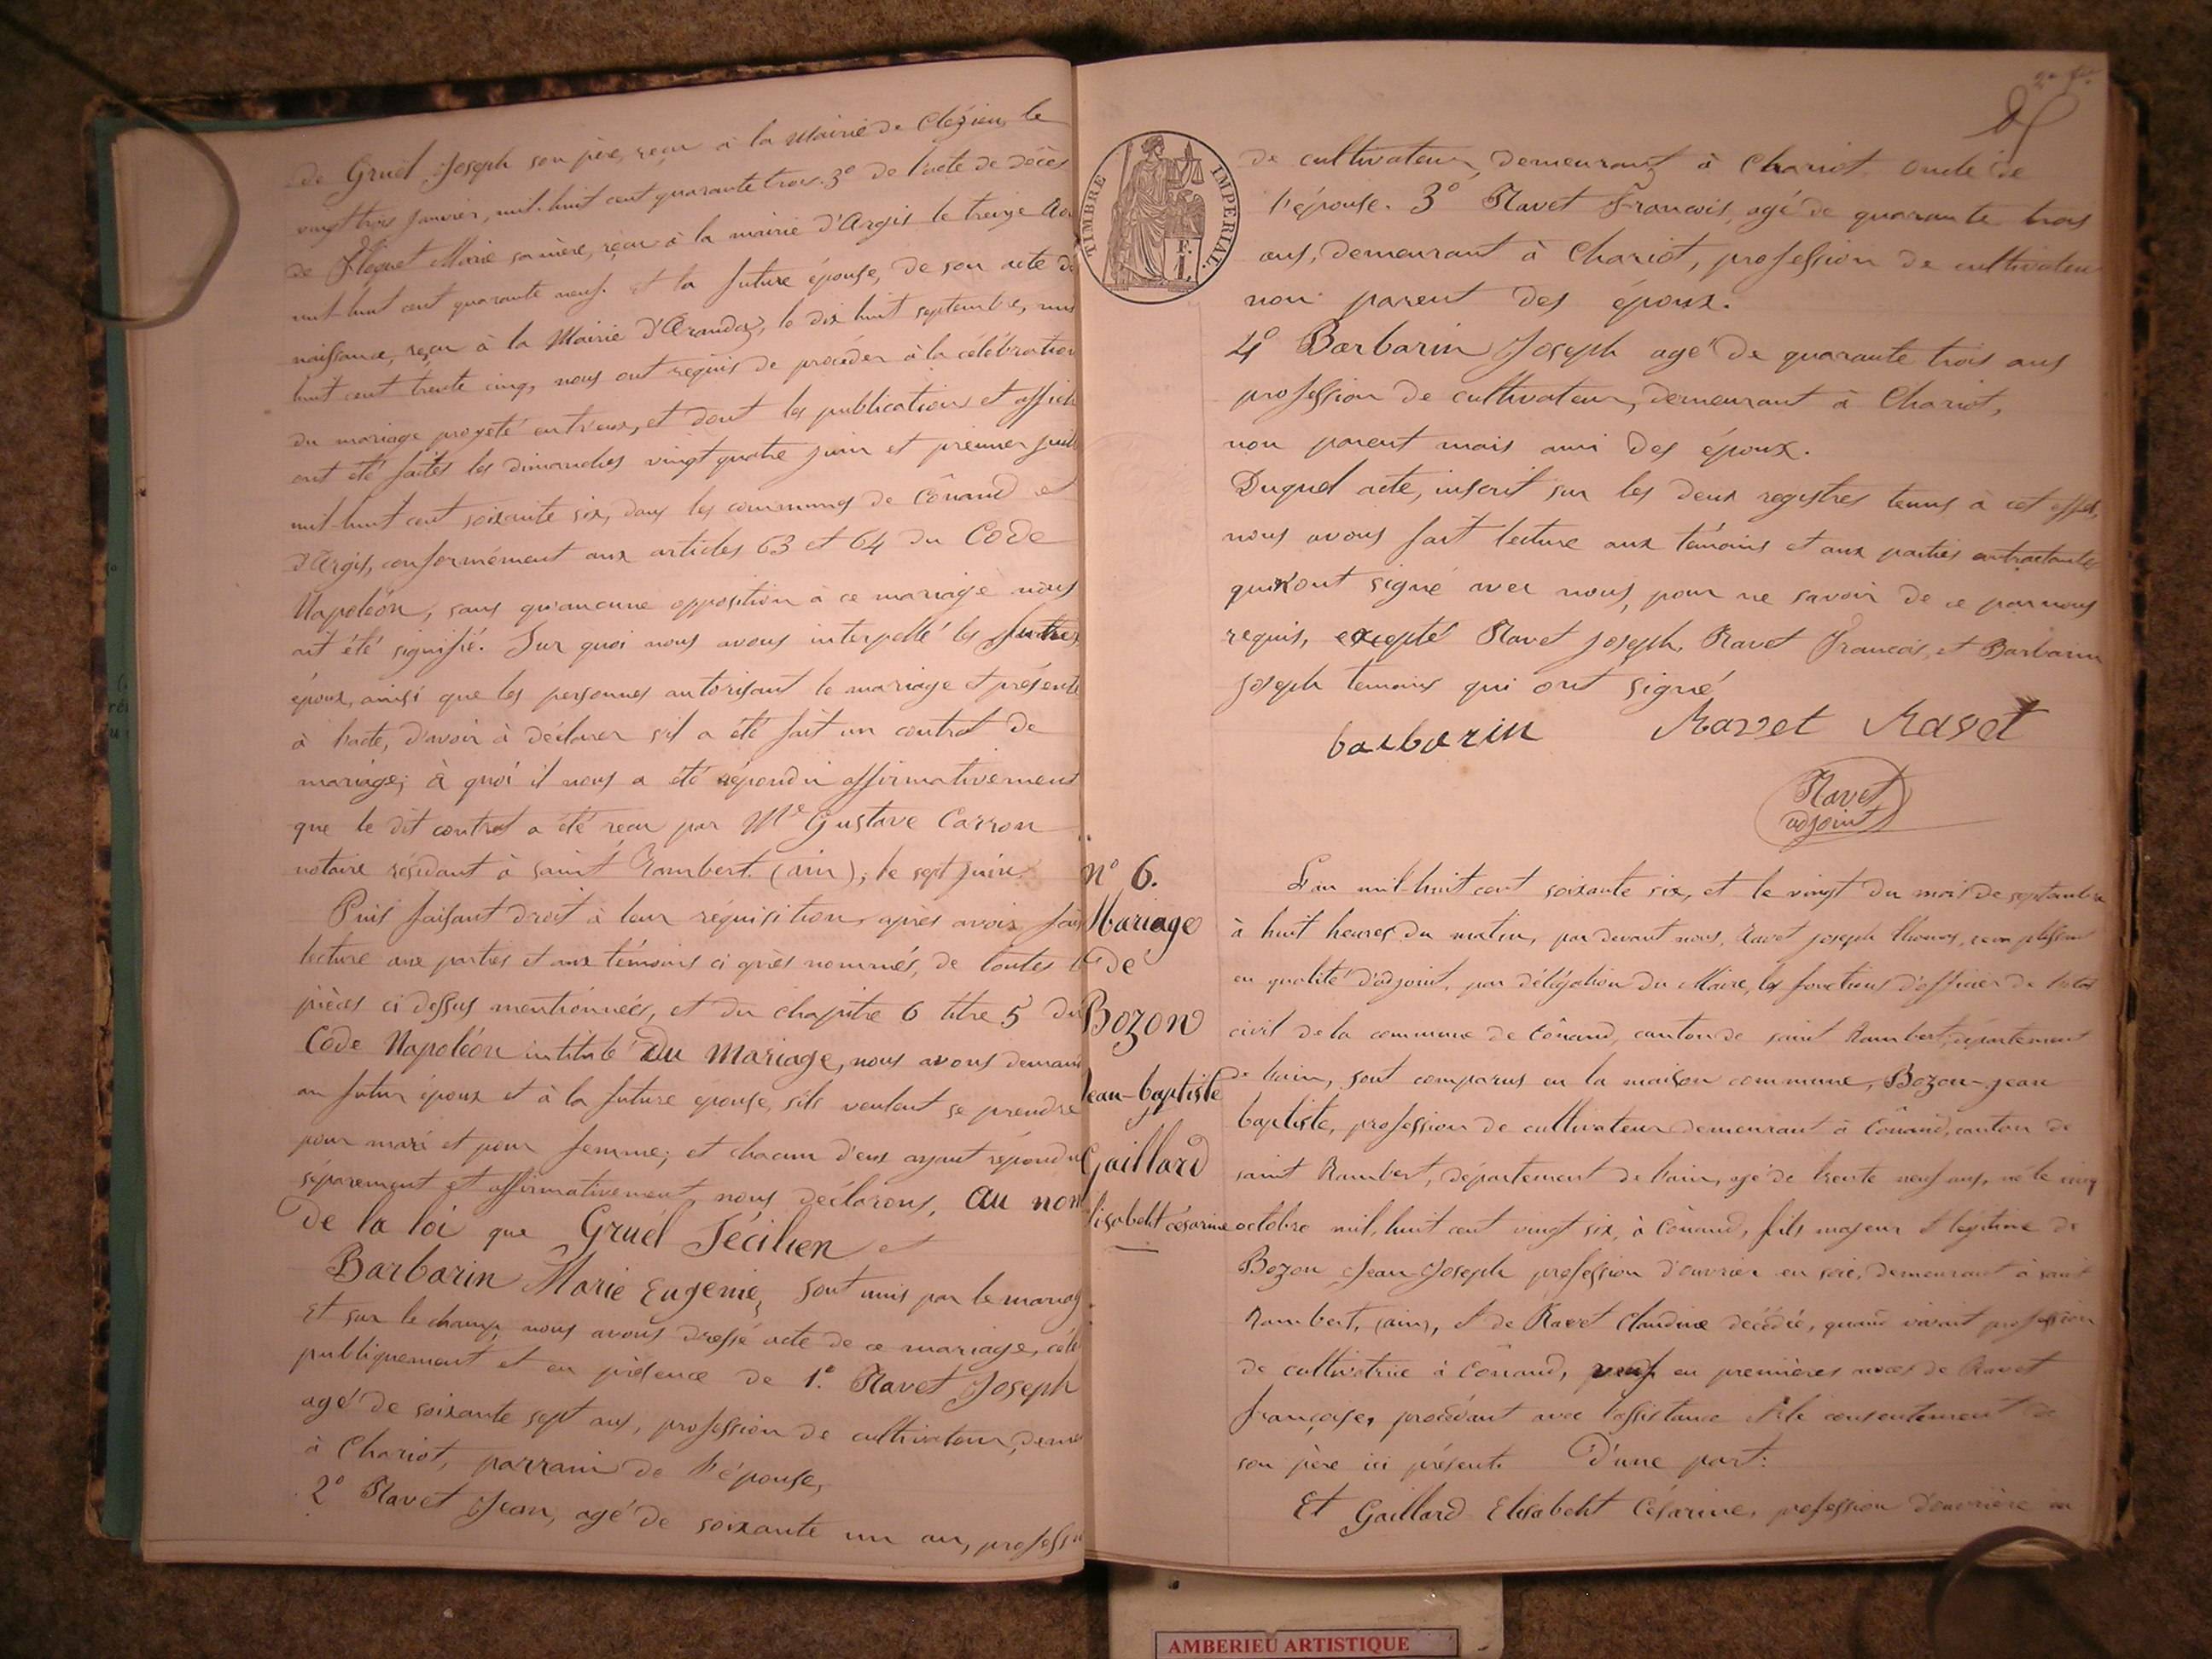 de Gruel Joseph son père, reçu à la Mairie de Cleyzieu, le
vingt trois janvier, mil-huit cent quarante trois. 3º de l'acte de décès
de Marie sa mère, reçu à la mairie d'Argis le treize
mil-huit cent quarante neuf. et la future épouse, de son acte de
naissance, reçu à la Mairie d'Arandaz, le dix huit septembre, mil
huit cent trente cinq, nous ont requis de procéder à la célébration
du mariage projeté entr'eux, et dont les publications et affich
ont été faites les dimanches vingt quatre juin et premier juil
mil-huit cent soixante six, dans les communes de Cônand et
d'Argis, conformément aux articles 63 et 64 du Code
Napoléon, sans qu'aucune opposition à ce mariage nous
ait été signifié. Sur quoi nous avons interpellé les futurs
époux, ainsi que les personnes autorisant le mariage et présente
à l'acte, d'avoir à déclarer s'il a été fait un contrat de
mariage; à quoi il nous a été répondu affirmativement
que le dit contrat a été reçu par Me Gustave Carron
notaire résidant à saint Rambert (ain), le sept juin
Puis faisant droit à leur réquisition, après avoir fait
lecture aux parties et aux témoins ci après nommés, de toutes l
pièces ci dessus mentionnées, et du chapitre 6 titre 5 du
Code Napoléon intitulé Du Mariage, nous avons demand
au futur époux et à la future épouse, s'ils veulent se prendre
pour mari et pour femme; et chacun d'eux ayant répondu
séparement et affirmativement, nous déclarons, au nom
de la loi que Gruel Fécilien et
Barbarin Marie Eugenie, sont unis par le mariag
Et sur le champ, nous avons dressé acte de ce mariage, célé
publiquement et en présence de 1º. Ravet Joseph
agé de soixante sept ans, profession de cultivateur, deme
à Chariot, parrain de l'épouse,
2º Ravet Jean, agé de soixante un an, profess
TIMBRE IMPERIAL.
F.
1.
de cultivateur, demeurant à Chariot oncle de
l'épouse. 3º Ravet François, agé de quarante trois
ans, demeurant à Chariot, profession de cultivateur
non parent des époux.
4º Barbarin Joseph agé de quarante trois ans
profession de cultivateur, demeurant à Chariot,
non parent mais ami des époux.
Duquel acte, inscrit sur les deux registres tenus à cet effet,
nous avons fait lecture aux témoins et aux parties contractantes
qui ont signé avec nous, pour ne savoir de ce par nous
requis, excepté Ravet Joseph, Ravet François, et Barbarin
Joseph temoins qui ont signé
barbarin Ravet Ravet
Ravet
adjoint
Nº 6.
Mariage
de
Bozon
Jean-baptiste
Gaillard
lisabeht césarine
L'an mil-huit cent soixante six, et le vingt du mois de septembre
à huit heures du matin, par devant nous, Ravet joseph thomas, remplissant
en qualité d'adjoint, par délégation du Maire, les fonctions d'officier de l'etat
civil de la commune de Cônand, canton de saint Rambert, département
de l'ain, sont comparus en la maison commune, Bozon-jean
baptiste, profession de cultivateur demeurant à Cônand, canton de
saint Rambert, département de l'ain, agé de trente neuf ans, né le cinq
octobre mil, huit cent vingt six, à Cônand, fils majeur & légitime de
Bozon Jean Joseph profession d'ouvrier en soie, demeurant à saint
Rambert, (ain), et de Ravet Claudine décédée, quand vivait profession
de cultivatrice à Cônand, veuf en premières noces de Ravet
françoise, procédant avec l'assistance & le consentement de
son père ici présent. D'une part:
Et Gaillard Elisabeht Césarine, profession d'ouvrière en
AMBERIEU ARTISTIQUE